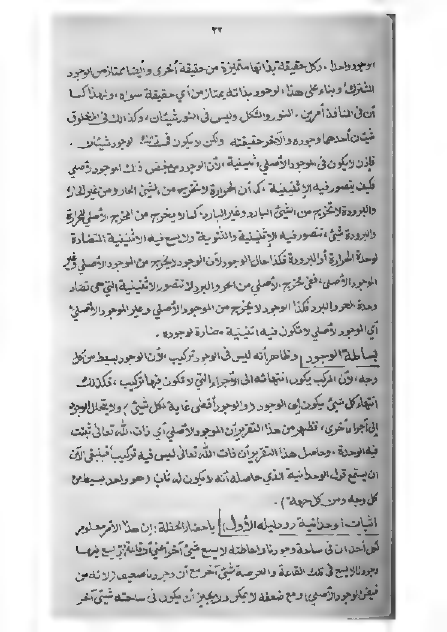 ٢٣
الوجود واحدا، وكل حقيقة بذاتها متميزة من حقيقة أخرى وأيضا ممتاز من الوجود
المشترك وبناء على هذا الوجود بذاته يمتاز من أي حقيقة سواه، وهذا كما
أن في النافذ أمرين. النور والشكل وليس في النور شيئان، وكذلك في المخلوق
شيئان أحدهما وجوده والآخر حقيقته ولكن لا يكون في الوجود شيئان.
فإذن لا يكون في الموجود الأصلي اثنينية، لأن الوجود محض ذلك الموجود الأصلي
فكيف يتصور فيه الإثنينية، كما أن الحرارة لا تخرج من الشيئ الحار ومن غير الحار
والبرودة لا تخرج من الشيئ البارد وغير البارد، كما لا يخرج من المخرج الأصلي للحرارة
والبرودة شيئ، تتصور فيه الإثنينية والثنوية ولا يسع فيه الاثنينية المتضادة
لوحدة الحرارة أو البرودة فكذا حال الوجود لأن الوجود لا يخرج من الموجود الأصلي وغير
الموجود الأصلي، ففي مخرج الأصلي من الحر والبرد لا تتصور الاثنينية التي هي تضاد
وحدة الحر والبرد فكذا الوجود لا يخرج من الموجود الأصلي وغير الموجود الأصلي
أي الموجود الأصلي لا تكون فيه اثنينية متضادة لوجوده.
بساطة الوجود) وظاهر أنه ليس في الوجود تركيب، لأن الوجود بسيط من كل
وجه، لأن المركب يكون انتهائه الى الأجزاء التي لا تكون فيها تركيب، فكذلك
انتهاء كل شيئ يكون إلى الوجود (والوجود أقصى غاية لكل شيئ) ولا يتحلل الوجود
إلى أجزاء أخرى، فظهر من هذا التقرير أن الموجود الأصلي أي ذات الله تعالى ثبتت
فيه الوحدة. وحاصل هذا التقرير أن ذات الله تعالى ليس فيه تركيب فينبغي الآن
أن يستمع قول الوحدانية الذي حاصله أنه لا يكون له ثان (وهو واحد بسيط من
كل وجه ومن كل جهة).
إثبات الوحدانية ودليله الأول) باحضار الحفظة: إن هذا الأمر معلوم
لكل أحد أن في ساحة وجودنا وإحاطته لا يسع شيئ آخر يعني أن قاعة يسع فيها
وجودنا لا يسع في تلك القاعة والعرصة شيئ آخر مع أن وجودنا ضعيف لأنه من
فيض الوجود الأصلي، ومع ضعفه لا يمكن ولا يجيز أن يكون في ساحته شيئ آخر